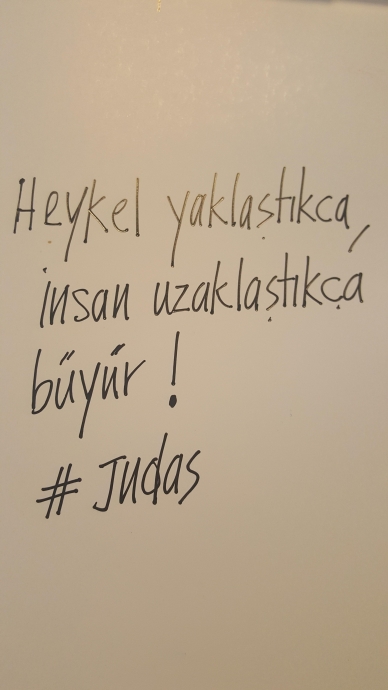 Heykel yaklaştıkca,
insan uzaklaştıkça
büyür!
# Judas